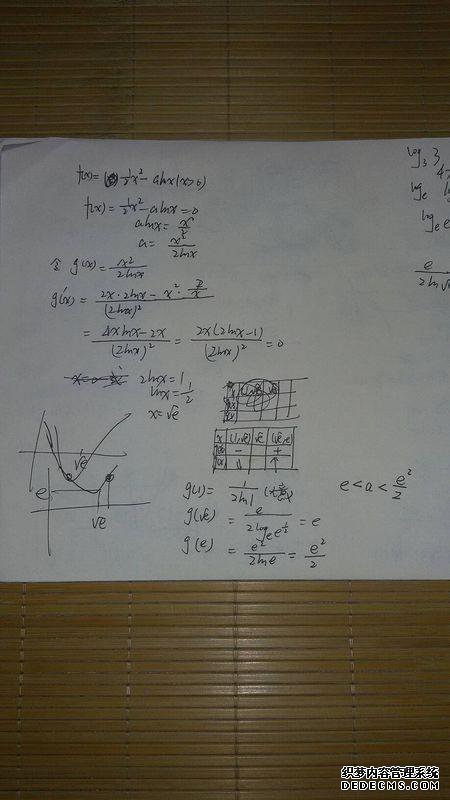 f(x)= ½x² - alnx (x>0)
f(x)= ½x² - alnx = 0
alnx = x²/2
a= x²/2lnx
令 g(x)= x²/2lnx
g'(x)= (2x·2lnx - x²·2/x)/(2lnx)²
= (4xlnx-2x)/(2lnx)² = 2x(2lnx-1)/(2lnx)² =0
2lnx = 1
lnx = 1/2
x=√e
x (1,√e) √e (√e,e)
- +
↓ ↑
√e
e
√e
g(1)= 1/2ln1
g(√e) = e/(2log_e e^½) = e
g(e) = e²/2lne = e²/2
e<a<e²/2
log₃ 3
log_e
log_e e
e
织梦内容管理系统
DEDECMS.COM